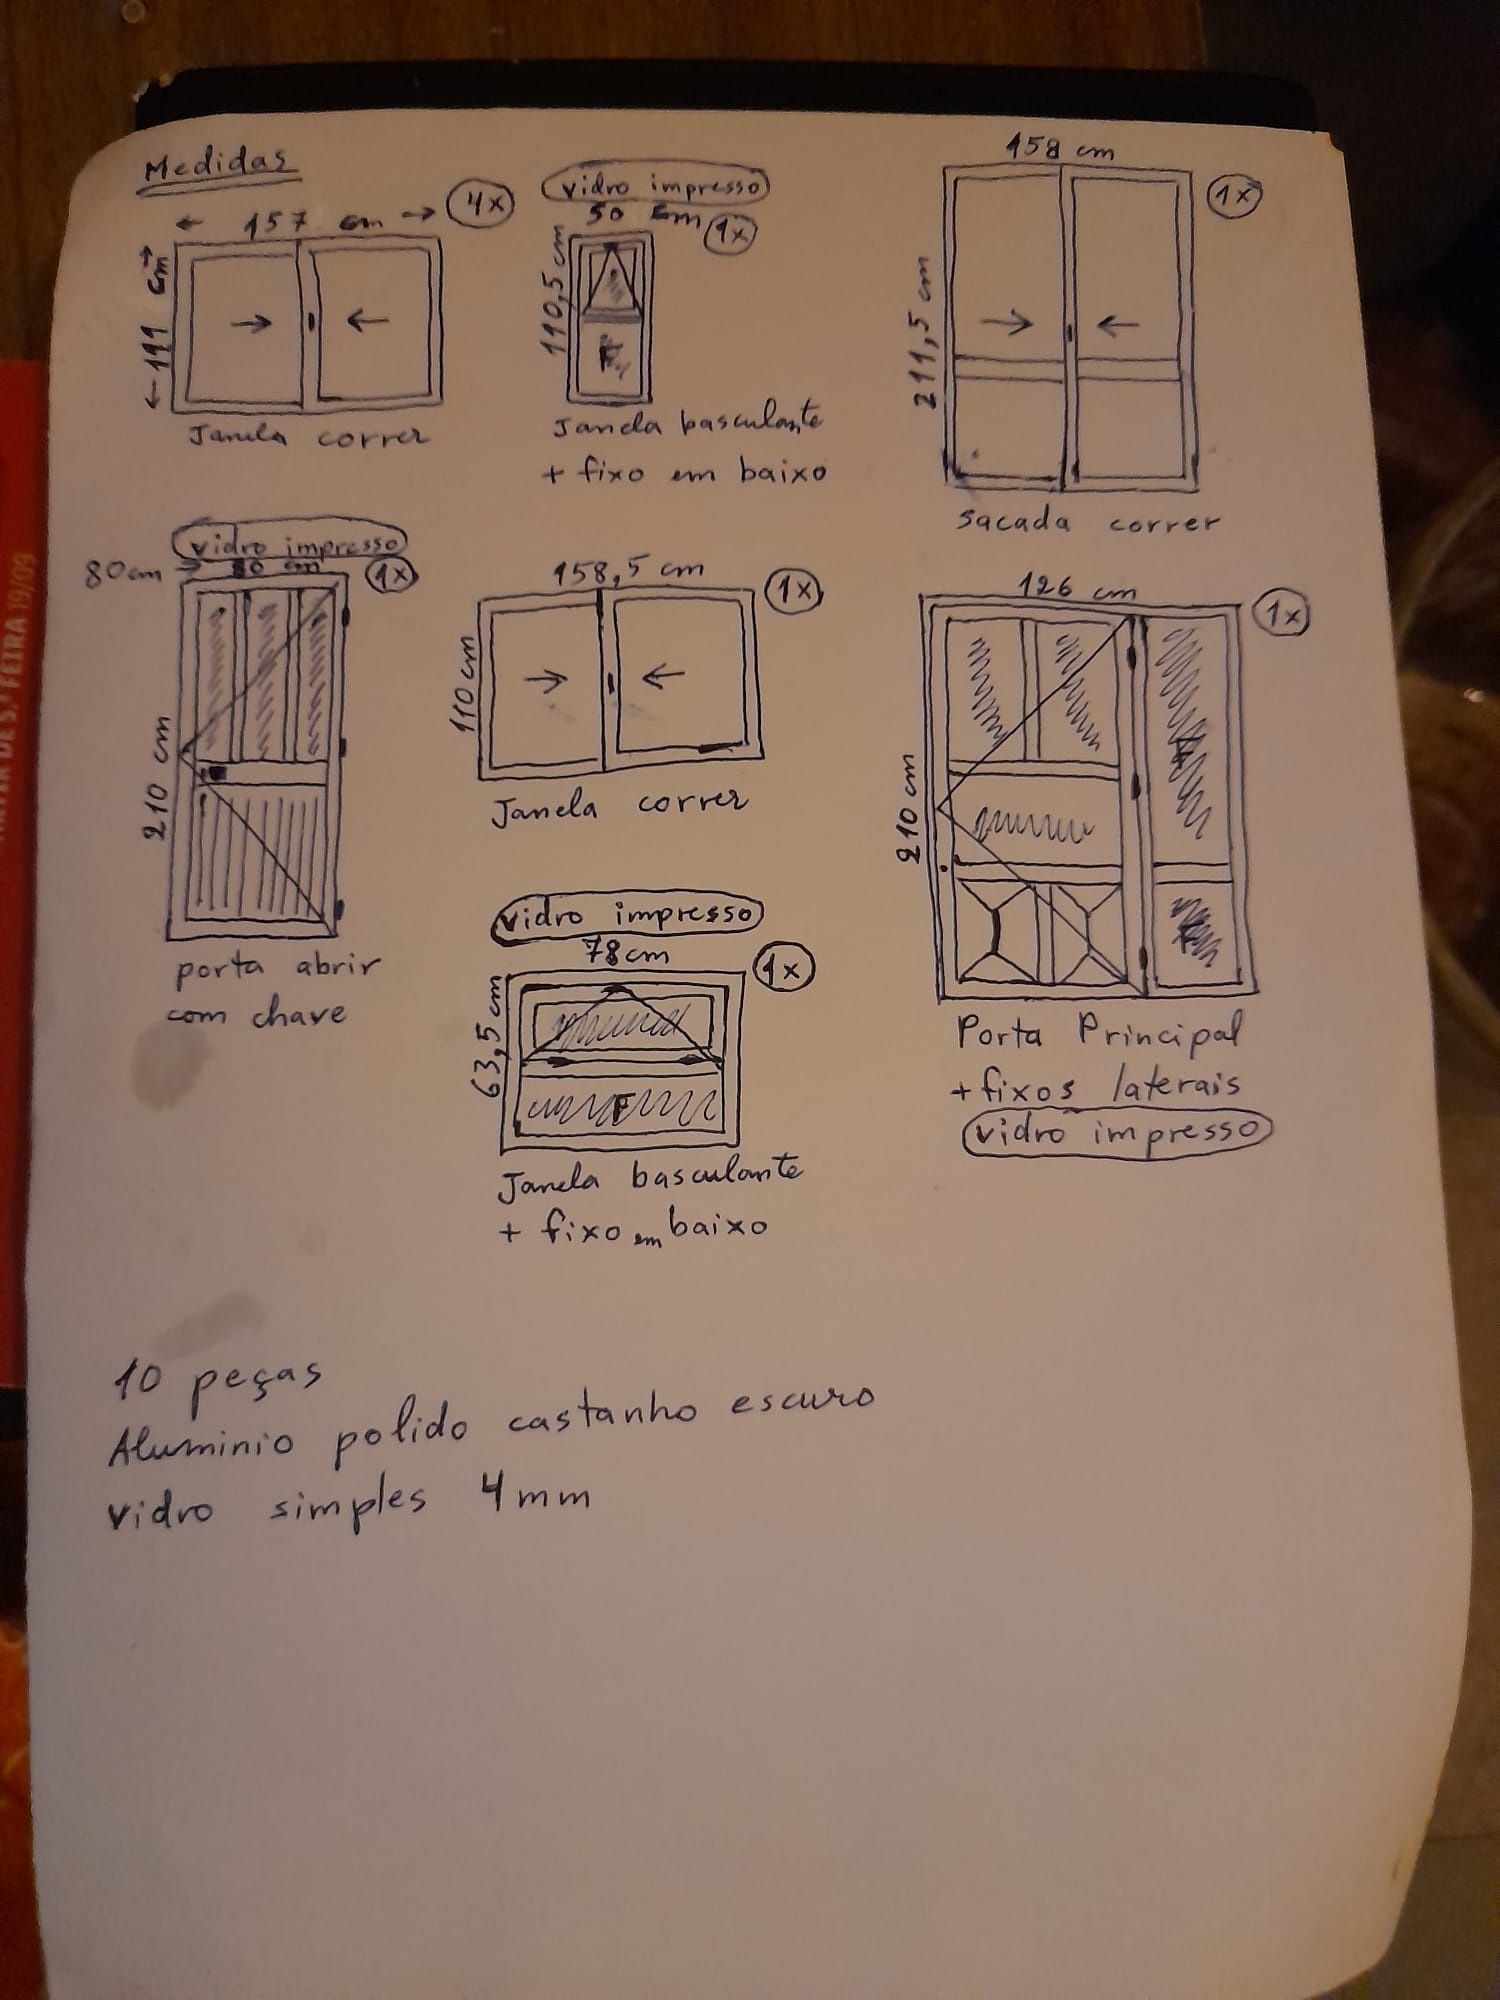 Medidas
← 157 cm →
4x
← 111 cm →
Janela correr
vidro impresso
50 cm
1x
110,5 cm
F
Janela basculante
+ fixo em baixo
158 cm
1x
211,5 cm
Sacada correr
vidro impresso
80cm →
1x
210 cm
porta abrir
com chave
158,5 cm
1x
110 cm
Janela correr
126 cm
1x
210 cm
F
F
Porta Principal
+ fixos laterais
vidro impresso
vidro impresso
78cm
1x
63,5 cm
F
Janela basculante
+ fixo em baixo
10 peças
Aluminio polido castanho escuro
vidro simples 4mm
5.ª FEIRA 19/09